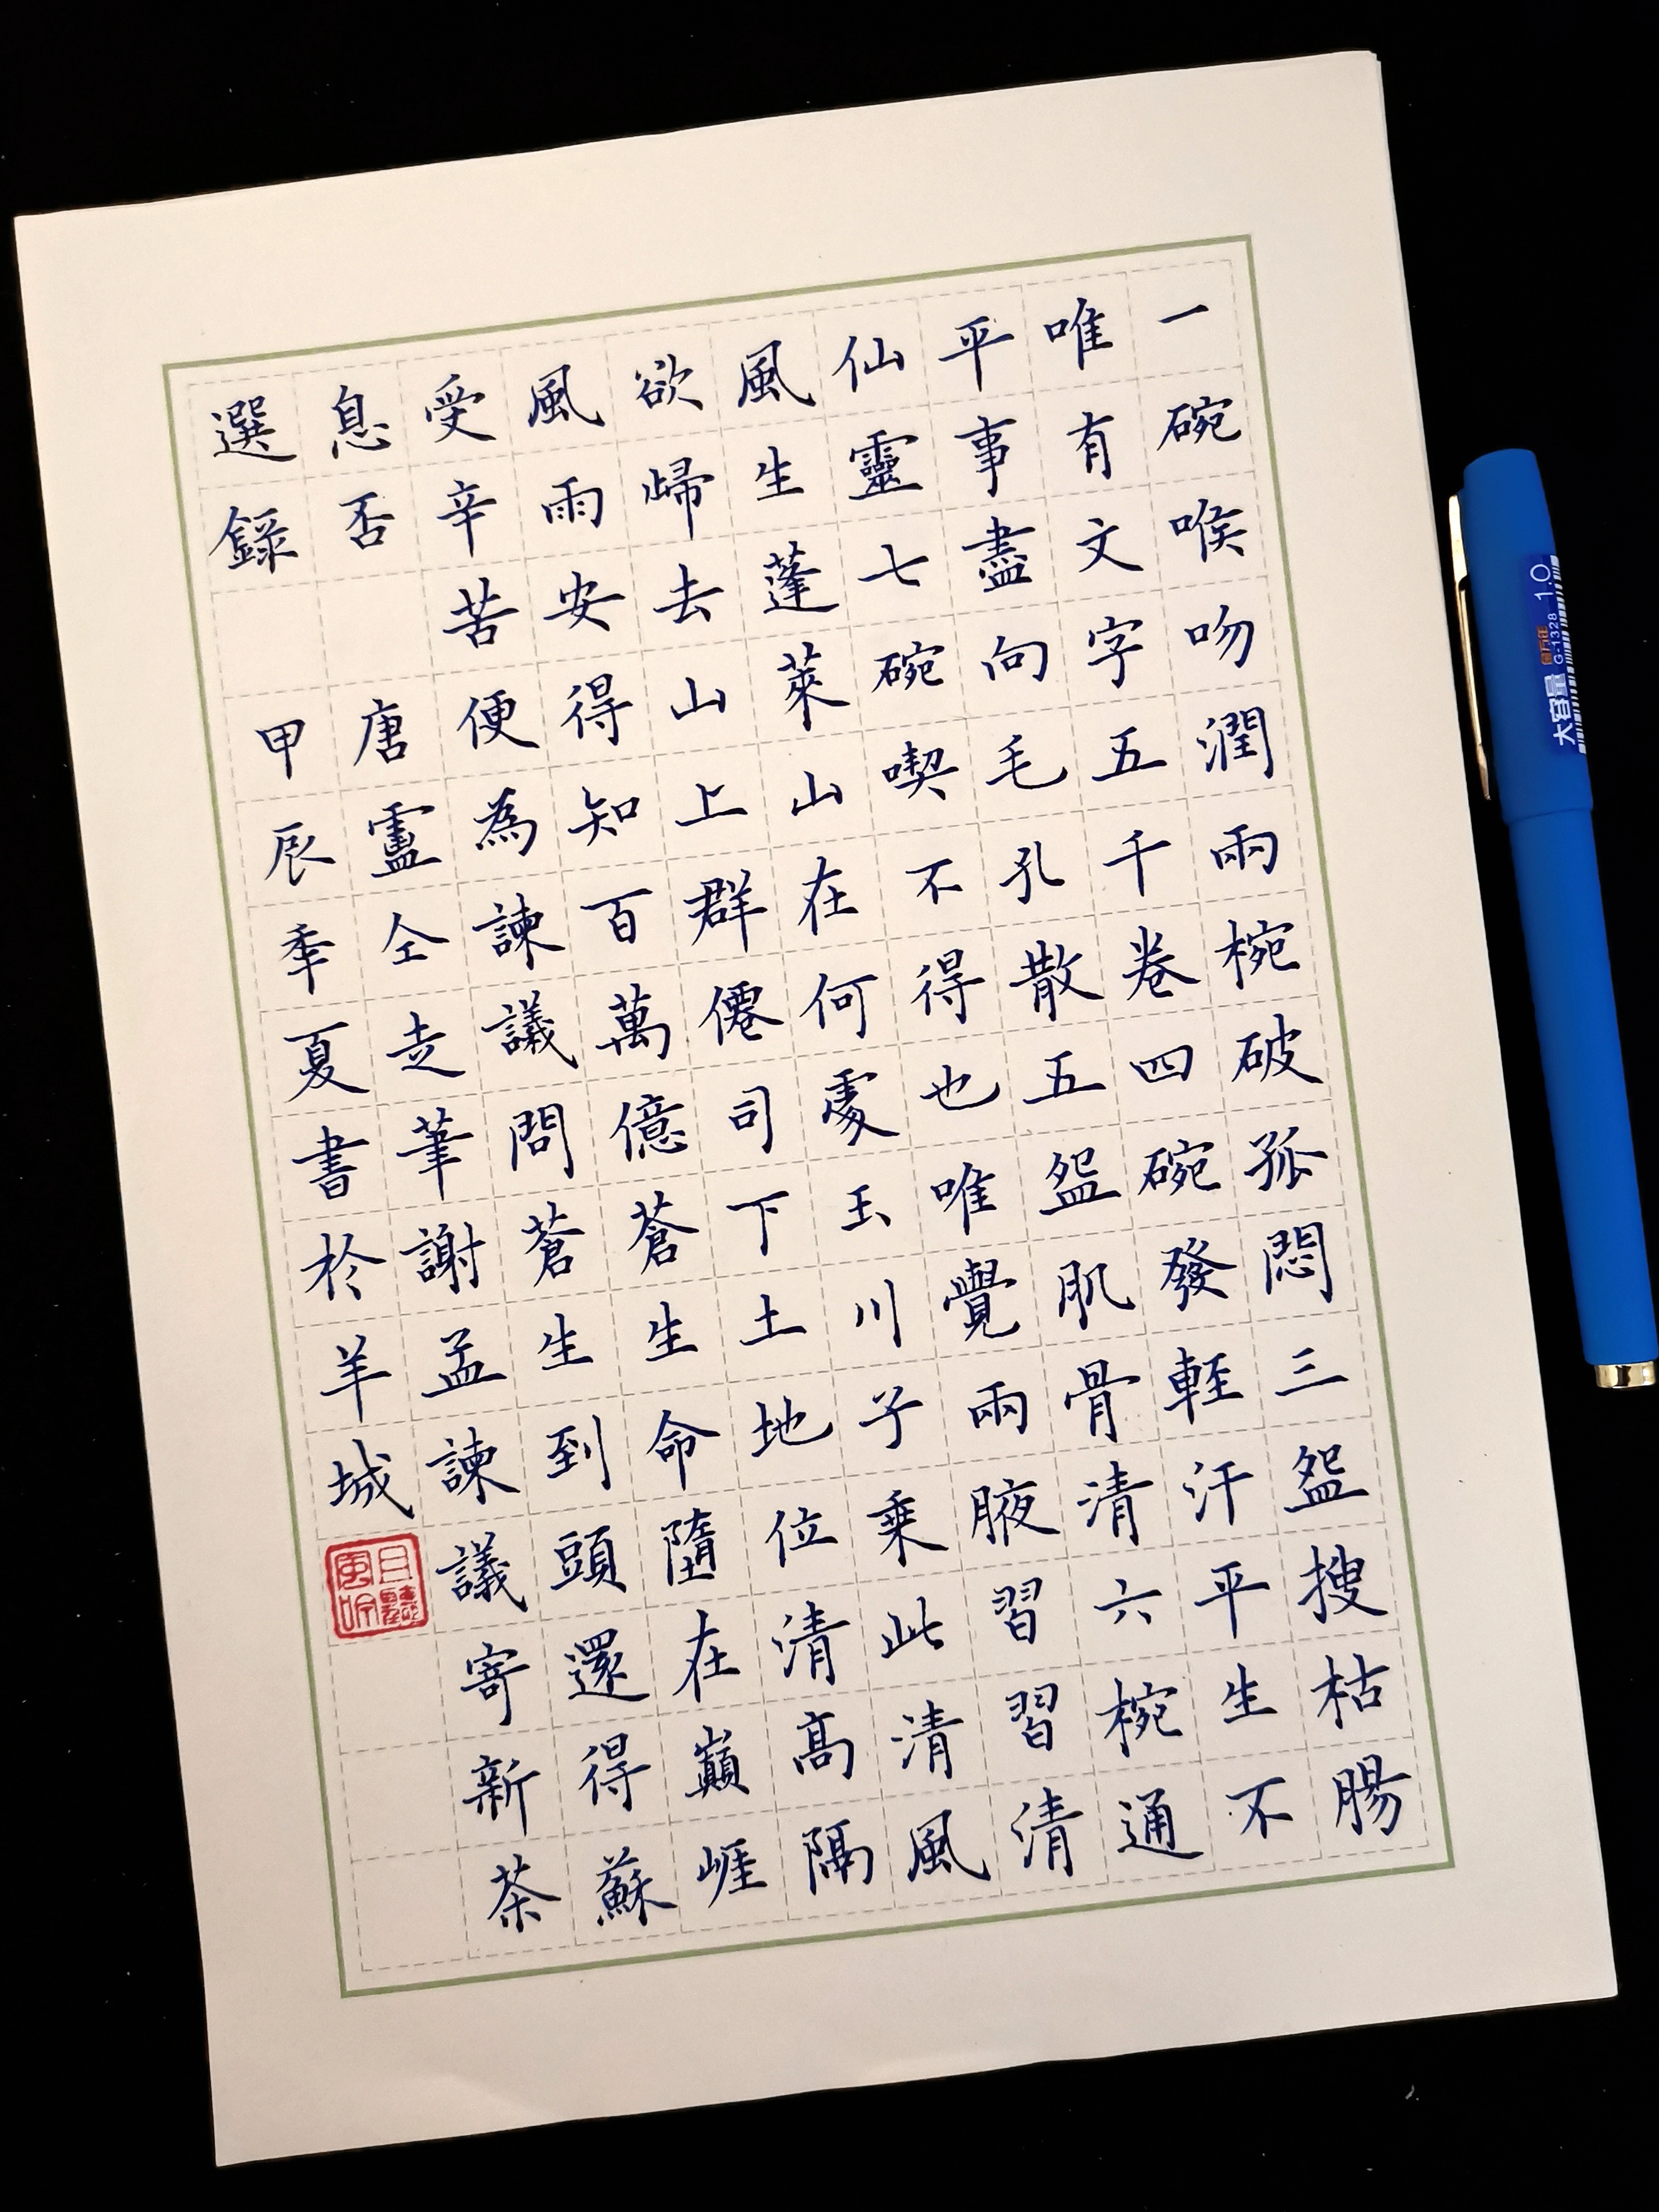 一碗喉吻潤兩椀破孤悶三盌搜枯腸
唯有文字五千卷四碗發輊汗平生不
平事盡向毛孔散五盌肌骨清六椀通
仙靈七碗喫不得也唯覺兩腋習習清
風生蓬萊山在何處玉川子乗此清風
欲歸去山上群僊司下土地位清高隔
風雨安得知百萬億蒼生命墮在巔崕
受辛苦便為諫議問蒼生到頭還得蘇
息否 唐盧仝走筆謝孟諫議寄新茶
選錄 甲辰季夏書於羊城
且聽風吟
大容量 G-1328 1.0